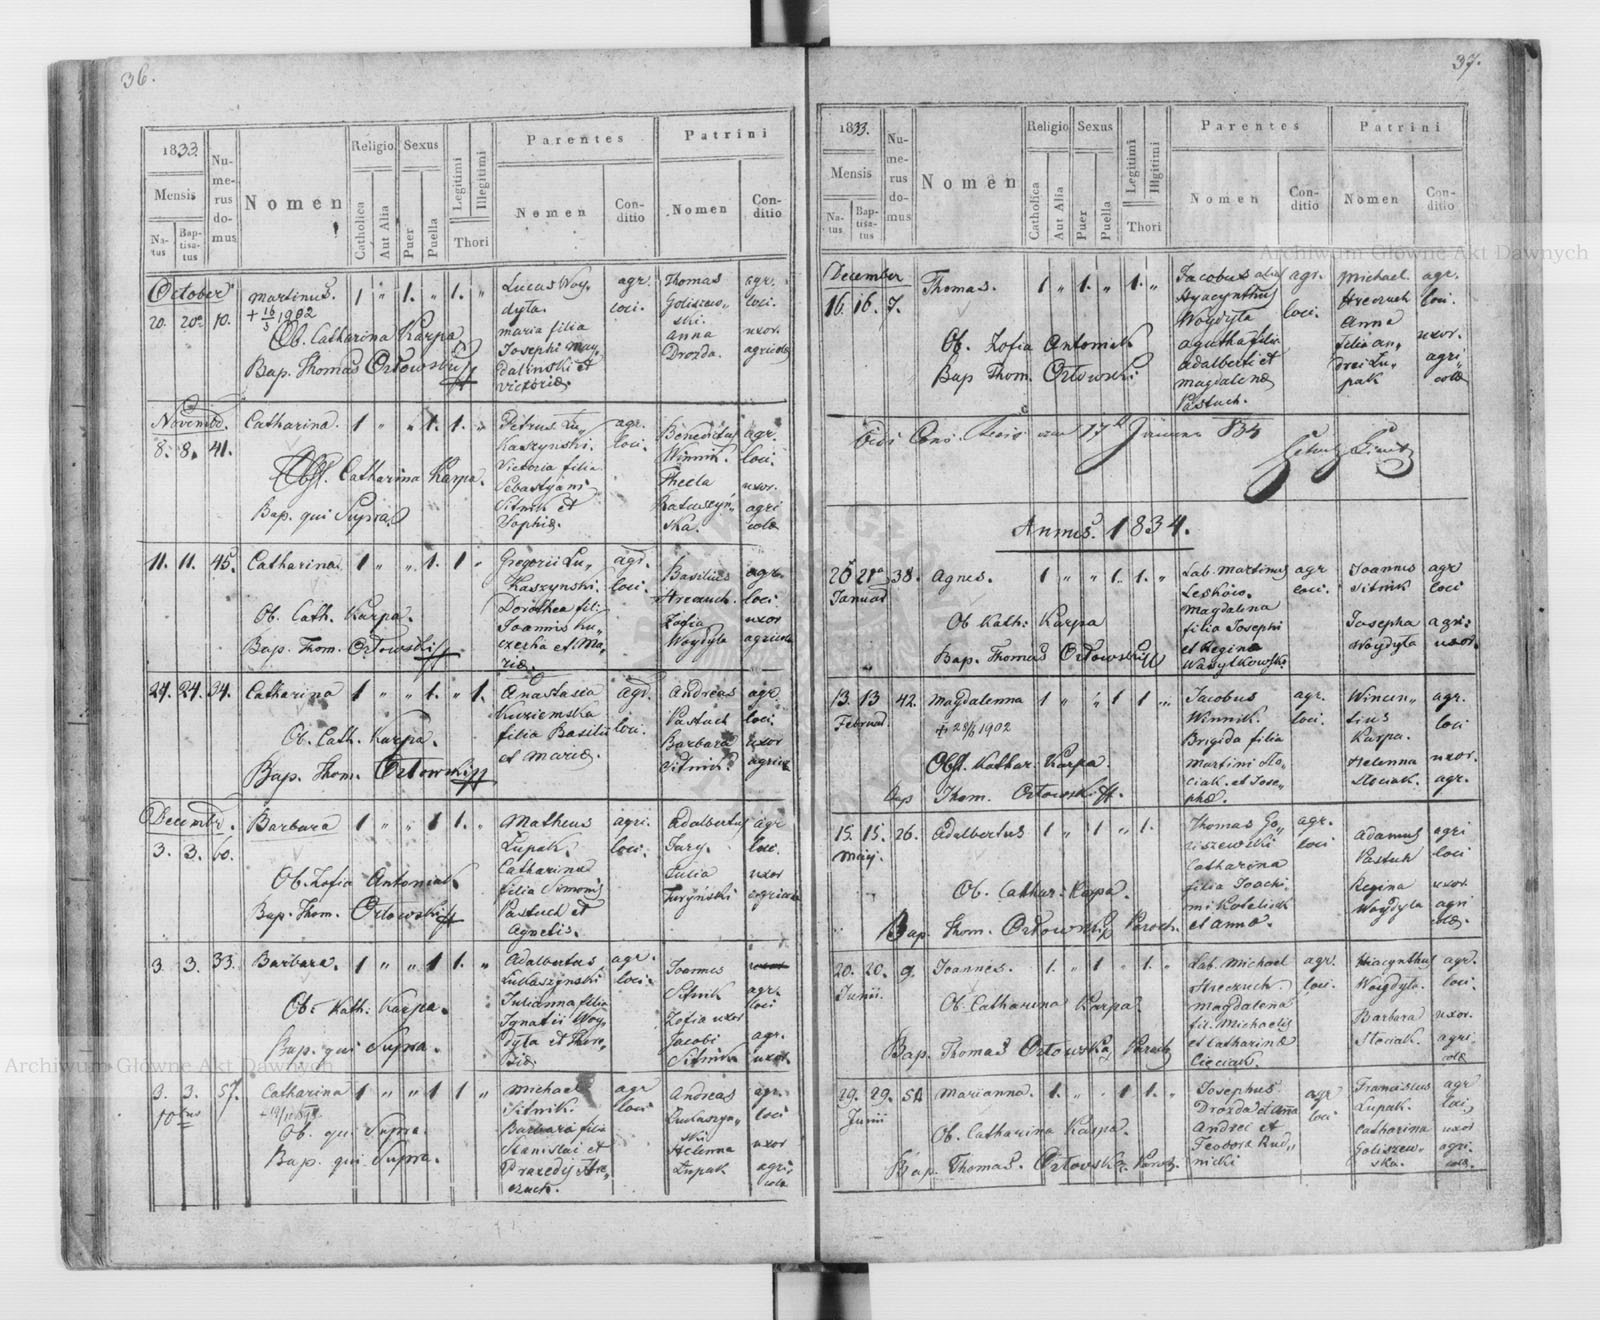 36.
1833.
Mensis
Natus
Baptisatus
Numerus domus
Nomen
Religio
Catholica
Aut Alia
Sexus
Puer
Puella
Legitimi
Illegitimi
Thori
Parentes
Nomen
Conditio
Patrini
Nomen
Conditio
October
20. 20. 10. Martinus. 1 " 1. " 1. "
+ 16/3 1902
Ob. Catharina Karpa
Bap. Thomas Orłowski
Lucas Woy„
dyła.
maria filia
Josephi May„
dalinski et
victoriæ.
agr.
loci.
Thomas
Goliszew„
ski.
Anna
Drozda.
agr.
loci.
uxor.
agricolæ
Novembr.
8. 8. 41. Catharina. 1 " " 1. 1. "
Obst. Catharina Karpa.
Bap. qui Supra
Petrus Łu„
kaszynski.
Victoria filia
Sebastyani
Sitnik et
Sophiæ.
agr.
loci.
Benedictus
Winnik.
Thecla
ska.
agr.
loci.
uxor.
agri
colæ
11. 11. 45. Catharina. 1 " " 1. 1 "
Ob. Cath. Karpa.
Bap. Thom. Orłowski
Gregorii Łu„
kaszynski.
Dorothea fili
Joannis Ku„
czecha et Ma„
riæ.
agr.
loci.
Basilius
Hreczuch.
Zofia
Woydyła
agr.
loci
uxor
agricolæ
24. 24. 34. Catharina 1 " " 1. " 1.
Ob. Cath. Karpa.
Bap. Thom. Orłowski
Anastasia
Kuziemska
filia Basilii
et Mariæ.
agr.
loci.
Andreas
Pastuch
Barbara
Sitnik
agr
loci
uxor
Decembr.
3. 3. 60. Barbara 1 " " 1 1. "
Ob. Zofia Antoniak.
Bap. Thom. Orłowski
Matheus
Łupak.
Catharina
filia Simonis
Pastuch et
Agnetis.
agri.
loci.
Adalbertus
Jury.
Julia
Juryński
agr
loci.
uxor
3. 3. 33. Barbara. 1 " " 1 1. "
Ob. Kath: Karpa.
Bap. qui Supra.
Adalbertus
Łukaszynski
Julianna filia
Ignatii Woy„
dyła et There„
siæ.
agr.
loci.
Joannes
Sitnik
Zofia uxor
Jacobi
Sitnik
agr.
loci
agr.
uxor.
3. 3. 57. Catharina 1 " " 1 1 "
Ob. qui Supra.
Bap. qui Supra.
Michael
Sitnik.
Barbara filia
Stanislai et
Praxedy Hre„
czuch.
agr
loci
Andreas
Łukaszyn„
ski
Helenna
Łupak
agr.
loci
uxor
agri„
colæ
37.
1833.
Mensis
Natus
Baptisatus
Numerus domus
Nomen
Religio
Catholica
Aut Alia
Sexus
Puer
Puella
Legitimi
Illgitimi
Thori
Parentes
Nomen
Conditio
Patrini
Nomen
Conditio
December
16. 16. 7. Thomas. 1 " 1. " 1. "
Ob. Zofia Antoniak
Bap Thom. Orłowski
Jacobus alias
Hyacynthus
Woydyła
agatha filia
adalberti et
magdalenæ
Pastuch.
agr.
loci.
Michael
Hreczuch
Anna
filia an„
drei Łu„
pak
agr.
loci.
uxor.
agri„
colæ
Annus. 1834.
20 21 38. Agnes. 1 " " 1. 1. "
Januar
Ob Kath: Karpa
Bap. Thomas Orłowski
Lab. Martinus
Leskow.
Magdalena
filia Josephi
et Regina
agr
loci.
Joannes
Sitnik
Josepha
Woydyła
agr
loci
agri:
uxor.
13. 13 42. Magdalenna 1 " " 1 1 "
Februar
+ 28/6 1902
Obst. Kathar. Karpa.
Bap Thom. Orłowski
Jacobus
Winnik.
Brigida filia
Martini Sło„
ciak. et Jose„
phæ.
agr.
loci.
Wincen„
tius
Karpa.
Helenna
Słociak.
agr.
loci
uxor.
agr.
15. 15. 26. Adalbertus 1 " 1 " 1.
Maij.
Ob. Cathar. Karpa.
Bap. Thom. Orłowski Paroch.
Thomas Go„
liszewski
Catharina
filia Joachi„
mi
et Annæ.
agr.
loci
Adamus
Pastuh
Regina
Woydyła
agri
loci
uxor.
agri
colæ.
20. 20. 9. Joannes. 1. " 1 " 1. "
Junii.
Ob. Catharina Karpa.
Bap. Thomas Orłowski Paroch
Lab. Michael
Hreczuch.
Magdalena
fil. Michaelis
et Catharinæ
Cieciak.
agr.
loci.
Hiacynthus
Woydyła.
Barbara
Słociak.
agr.
loci.
uxor.
agri:
colæ
29. 29. 51 Marianna. 1. " " 1 1. "
Junii
Ob. Catharina Karpa.
Bap. Thomas. Orłowski Paroch.
Josephus
Drozda et Anna
Andrei et
Teodora Rud„
nicki
agr
loci
Franciscus
Łupak.
Catharina
Goliszew„
ska.
agr
loci
uxor
agri:
colæ.
Archiwum Główne Akt Dawnych
Archiwum Główne Akt Dawnych